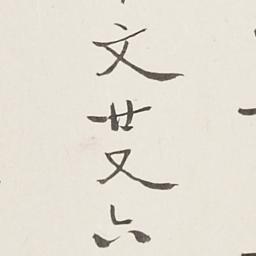 文廿又六